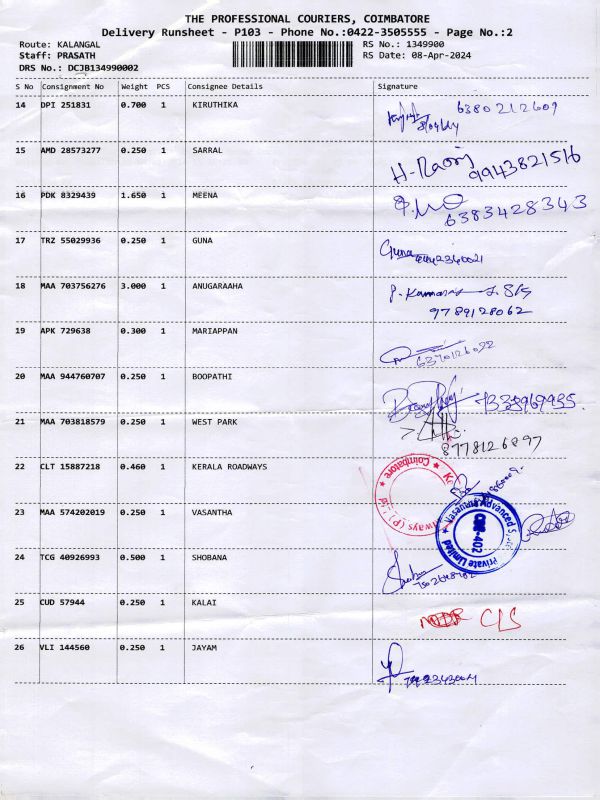 THE PROFESSIONAL COURIERS, COIMBATORE
Delivery Runsheet - P103 - Phone No.:0422-3505555 - Page No.:2
Route: KALANGAL RS No.: 1349900
Staff: PRASATH RS Date: 08-Apr-2024
DRS No.: DCJB134990002
S No Consignment No Weight PCS Consignee Details Signature
14 DPI 251831 0.700 1 KIRUTHIKA 6380212609
15 AMD 28573277 0.250 1 SARRAL 9943821516
16 PDK 8329439 1.650 1 MEENA
6383428343
17 TRZ 55029936 0.250 1 GUNA Guna
18 MAA 703756276 3.000 1 ANUGARAAHA
9789128062
19 APK 729638 0.300 1 MARIAPPAN
6370126022
20 MAA 944760707 0.250 1 BOOPATHI
21 MAA 703818579 0.250 1 WEST PARK
8778126897
22 CLT 15887218 0.460 1 KERALA ROADWAYS
Coimbatore
23 MAA 574202019 0.250 1 VASANTHA
Vasantha Advanced
CBE-402
Private Limited
24 TCG 40926993 0.500 1 SHOBANA
25 CUD 57944 0.250 1 KALAI C/S
26 VLI 144560 0.250 1 JAYAM